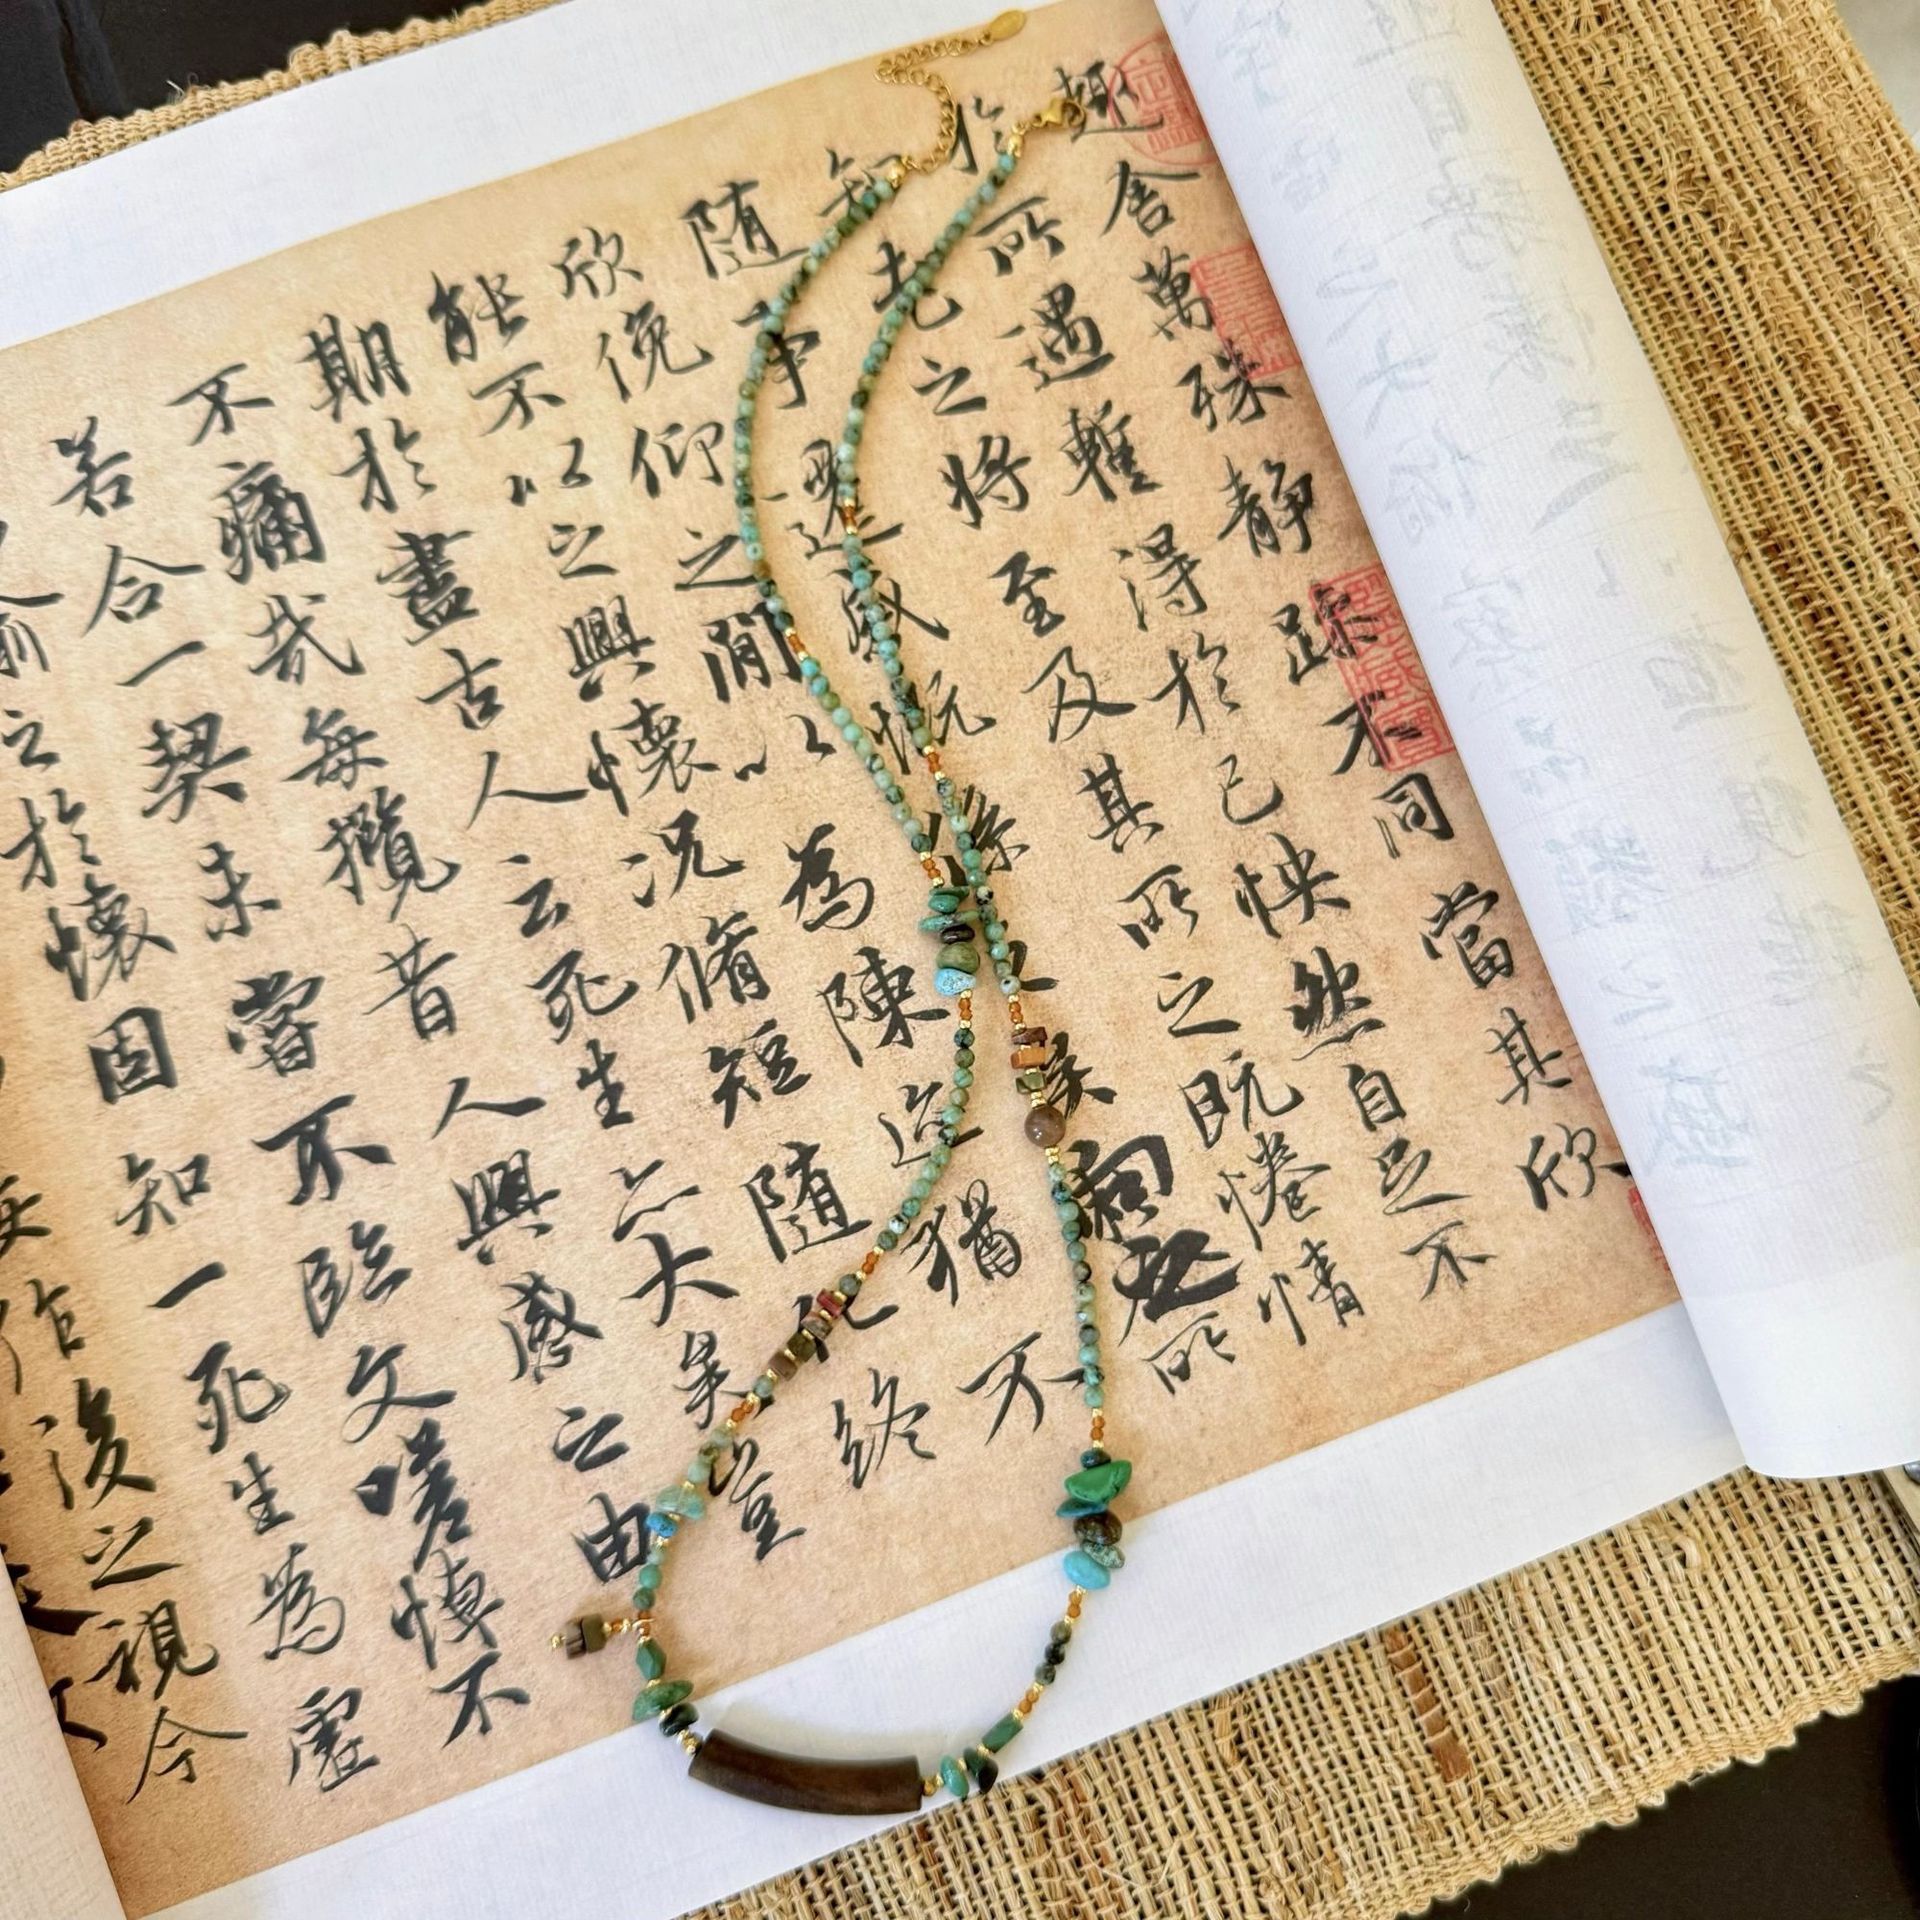 趣舍萬殊静躁不同當其欣
於所遇蹔得於己怏然自足不
知老之將至及其所之既惓情
隨事遷感慨係之矣向之所
欣俛仰之閒以為陳迹猶不
能不以之興懷況脩短隨化終
期於盡古人云死生亦大矣豈
不痛哉每攬昔人興感之由
若合一契未嘗不臨文嗟悼不
喻之於懷固知一死生為虛
作後之視今